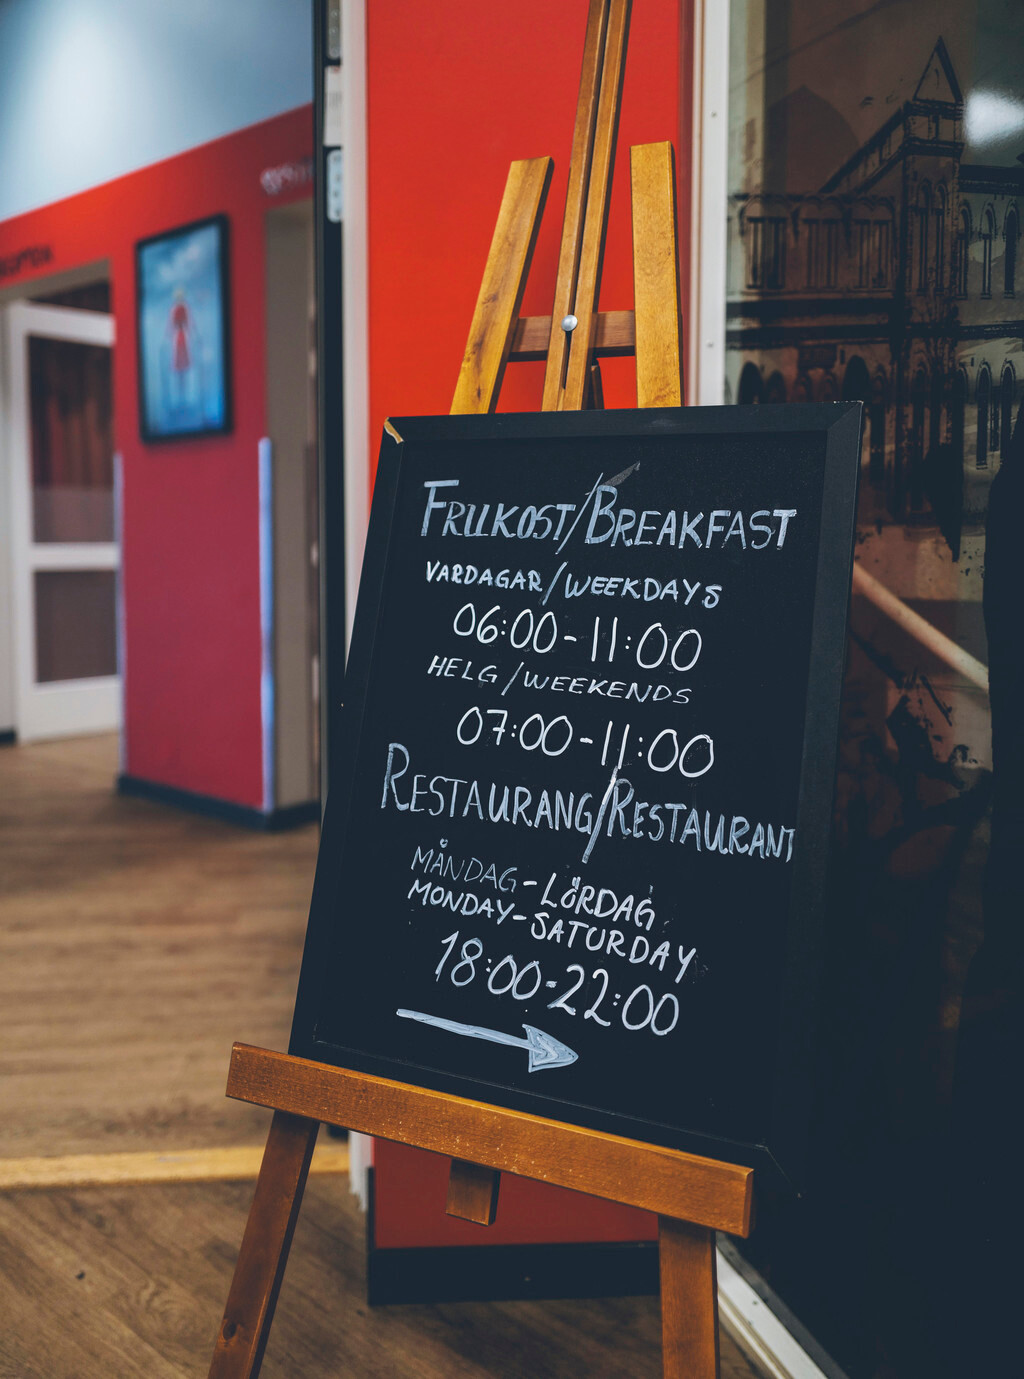 FRUKOST/BREAKFAST
VARDAGAR/WEEKDAYS
06:00-11:00
HELG/WEEKENDS
07:00-11:00
RESTAURANG/RESTAURANT
MÅNDAG-LÖRDAG
MONDAY-SATURDAY
18:00-22:00